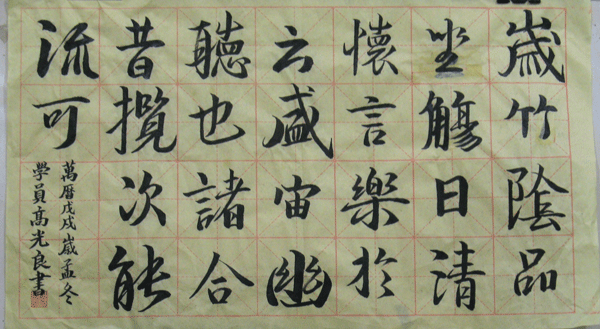 歲竹陰品
坐觴日清
懷言樂於
云盛宙幽
聽也諸合
昔攬次能
流可
萬曆戊戌歲孟冬
學員高光良書